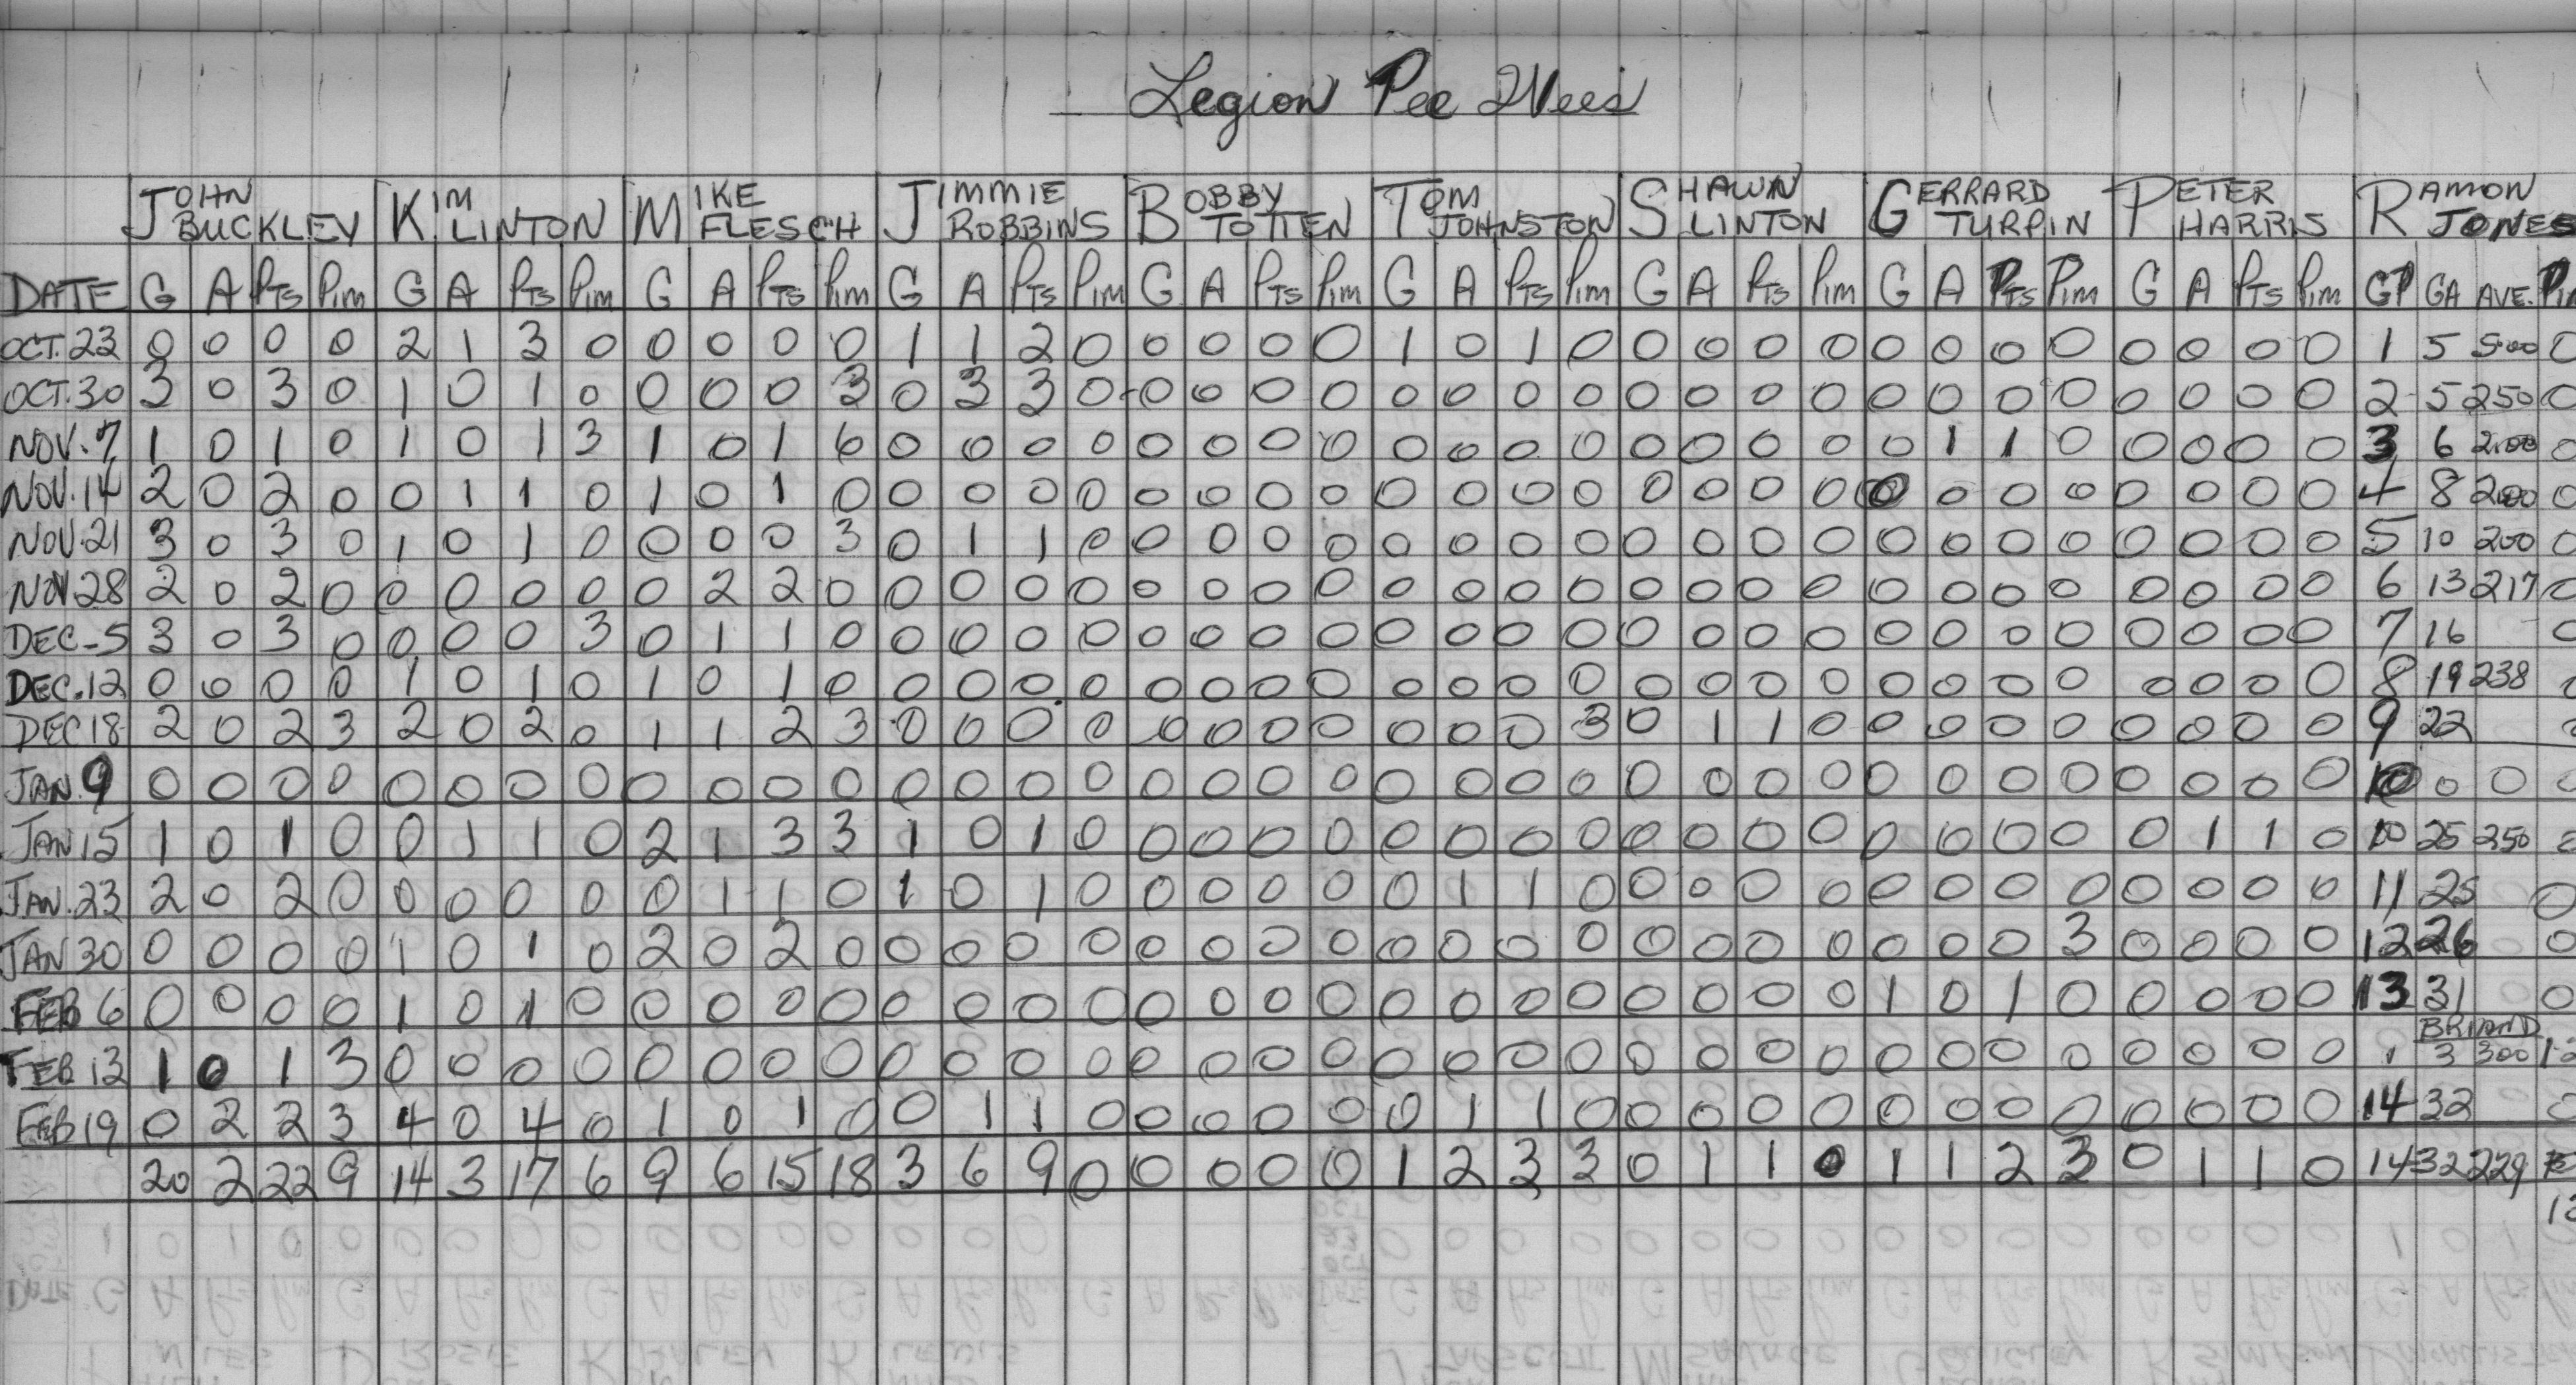 Legion Pee Wees
JOHN BUCKLEY KIM LINTON MIKE FLESCH JIMMIE ROBBINS BOBBY TOTTEN TOM JOHNSTON SHAWN LINTON GERRARD TURPIN PETER HARRIS RAMON JONES
DATE G A PTS PIM G A PTS PIM G A PTS PIM G A PTS PIM G A PTS PIM G A PTS PIM G A PTS PIM G A PTS PIM G A PTS PIM GP GA AVE.
OCT. 23 0 0 0 0 2 1 3 0 0 0 0 0 1 1 2 0 0 0 0 0 1 0 1 0 0 0 0 0 0 0 0 0 0 0 0 0 1 5 500 0
OCT. 30 3 0 3 0 1 0 1 0 0 0 0 3 0 3 3 0 0 0 0 0 0 0 0 0 0 0 0 0 0 0 0 0 0 0 0 0 2 5 250 0
NOV. 7 1 0 1 0 1 0 1 3 1 0 1 6 0 0 0 0 0 0 0 0 0 0 0 0 0 0 0 0 0 1 1 0 0 0 0 0 3 6 200 0
NOV. 14 2 0 2 0 0 1 1 0 1 0 1 0 0 0 0 0 0 0 0 0 0 0 0 0 0 0 0 0 0 0 0 0 0 0 0 0 4 8 200 0
NOV. 21 3 0 3 0 1 0 1 0 0 0 0 3 0 1 1 0 0 0 0 0 0 0 0 0 0 0 0 0 0 0 0 0 0 0 0 0 5 10 200 0
NOV 28 2 0 2 0 0 0 0 0 0 2 2 0 0 0 0 0 0 0 0 0 0 0 0 0 0 0 0 0 0 0 0 0 0 0 0 0 6 13 217 0
DEC-5 3 0 3 0 0 0 0 3 0 1 1 0 0 0 0 0 0 0 0 0 0 0 0 0 0 0 0 0 0 0 0 0 0 0 0 0 7 16 0
DEC. 12 0 0 0 0 1 0 1 0 1 0 1 0 0 0 0 0 0 0 0 0 0 0 0 0 0 0 0 0 0 0 0 0 0 0 0 0 8 19 238 0
DEC 18 2 0 2 3 2 0 2 0 1 1 2 3 0 0 0 0 0 0 0 0 0 0 0 3 0 1 1 0 0 0 0 0 0 0 0 0 9 22 0
JAN. 9 0 0 0 0 0 0 0 0 0 0 0 0 0 0 0 0 0 0 0 0 0 0 0 0 0 0 0 0 0 0 0 0 0 0 0 0 0 0 0
JAN 15 1 0 1 0 0 1 1 0 2 1 3 3 1 0 1 0 0 0 0 0 0 0 0 0 0 0 0 0 0 0 0 0 0 1 1 0 10 25 250 0
JAN. 23 2 0 2 0 0 0 0 0 0 1 1 0 1 0 1 0 0 0 0 0 0 1 1 0 0 0 0 0 0 0 0 0 0 0 0 0 11 25 0
JAN 30 0 0 0 0 1 0 1 0 2 0 2 0 0 0 0 0 0 0 0 0 0 0 0 0 0 0 0 0 0 0 0 3 0 0 0 0 12 26 0
FEB 6 0 0 0 0 1 0 1 0 0 0 0 0 0 0 0 0 0 0 0 0 0 0 0 0 0 0 0 0 1 0 1 0 0 0 0 0 13 31 0
BRIAND
FEB 13 1 0 1 3 0 0 0 0 0 0 0 0 0 0 0 0 0 0 0 0 0 0 0 0 0 0 0 0 0 0 0 0 0 0 0 0 1 3 300
FEB 19 0 2 2 3 4 0 4 0 1 0 1 0 0 1 1 0 0 0 0 0 0 1 1 0 0 0 0 0 0 0 0 0 0 0 0 0 14 32 0
20 2 22 9 14 3 17 6 9 6 15 18 3 6 9 0 0 0 0 0 1 2 3 3 0 1 1 0 1 1 2 3 0 1 1 0 14 32 229